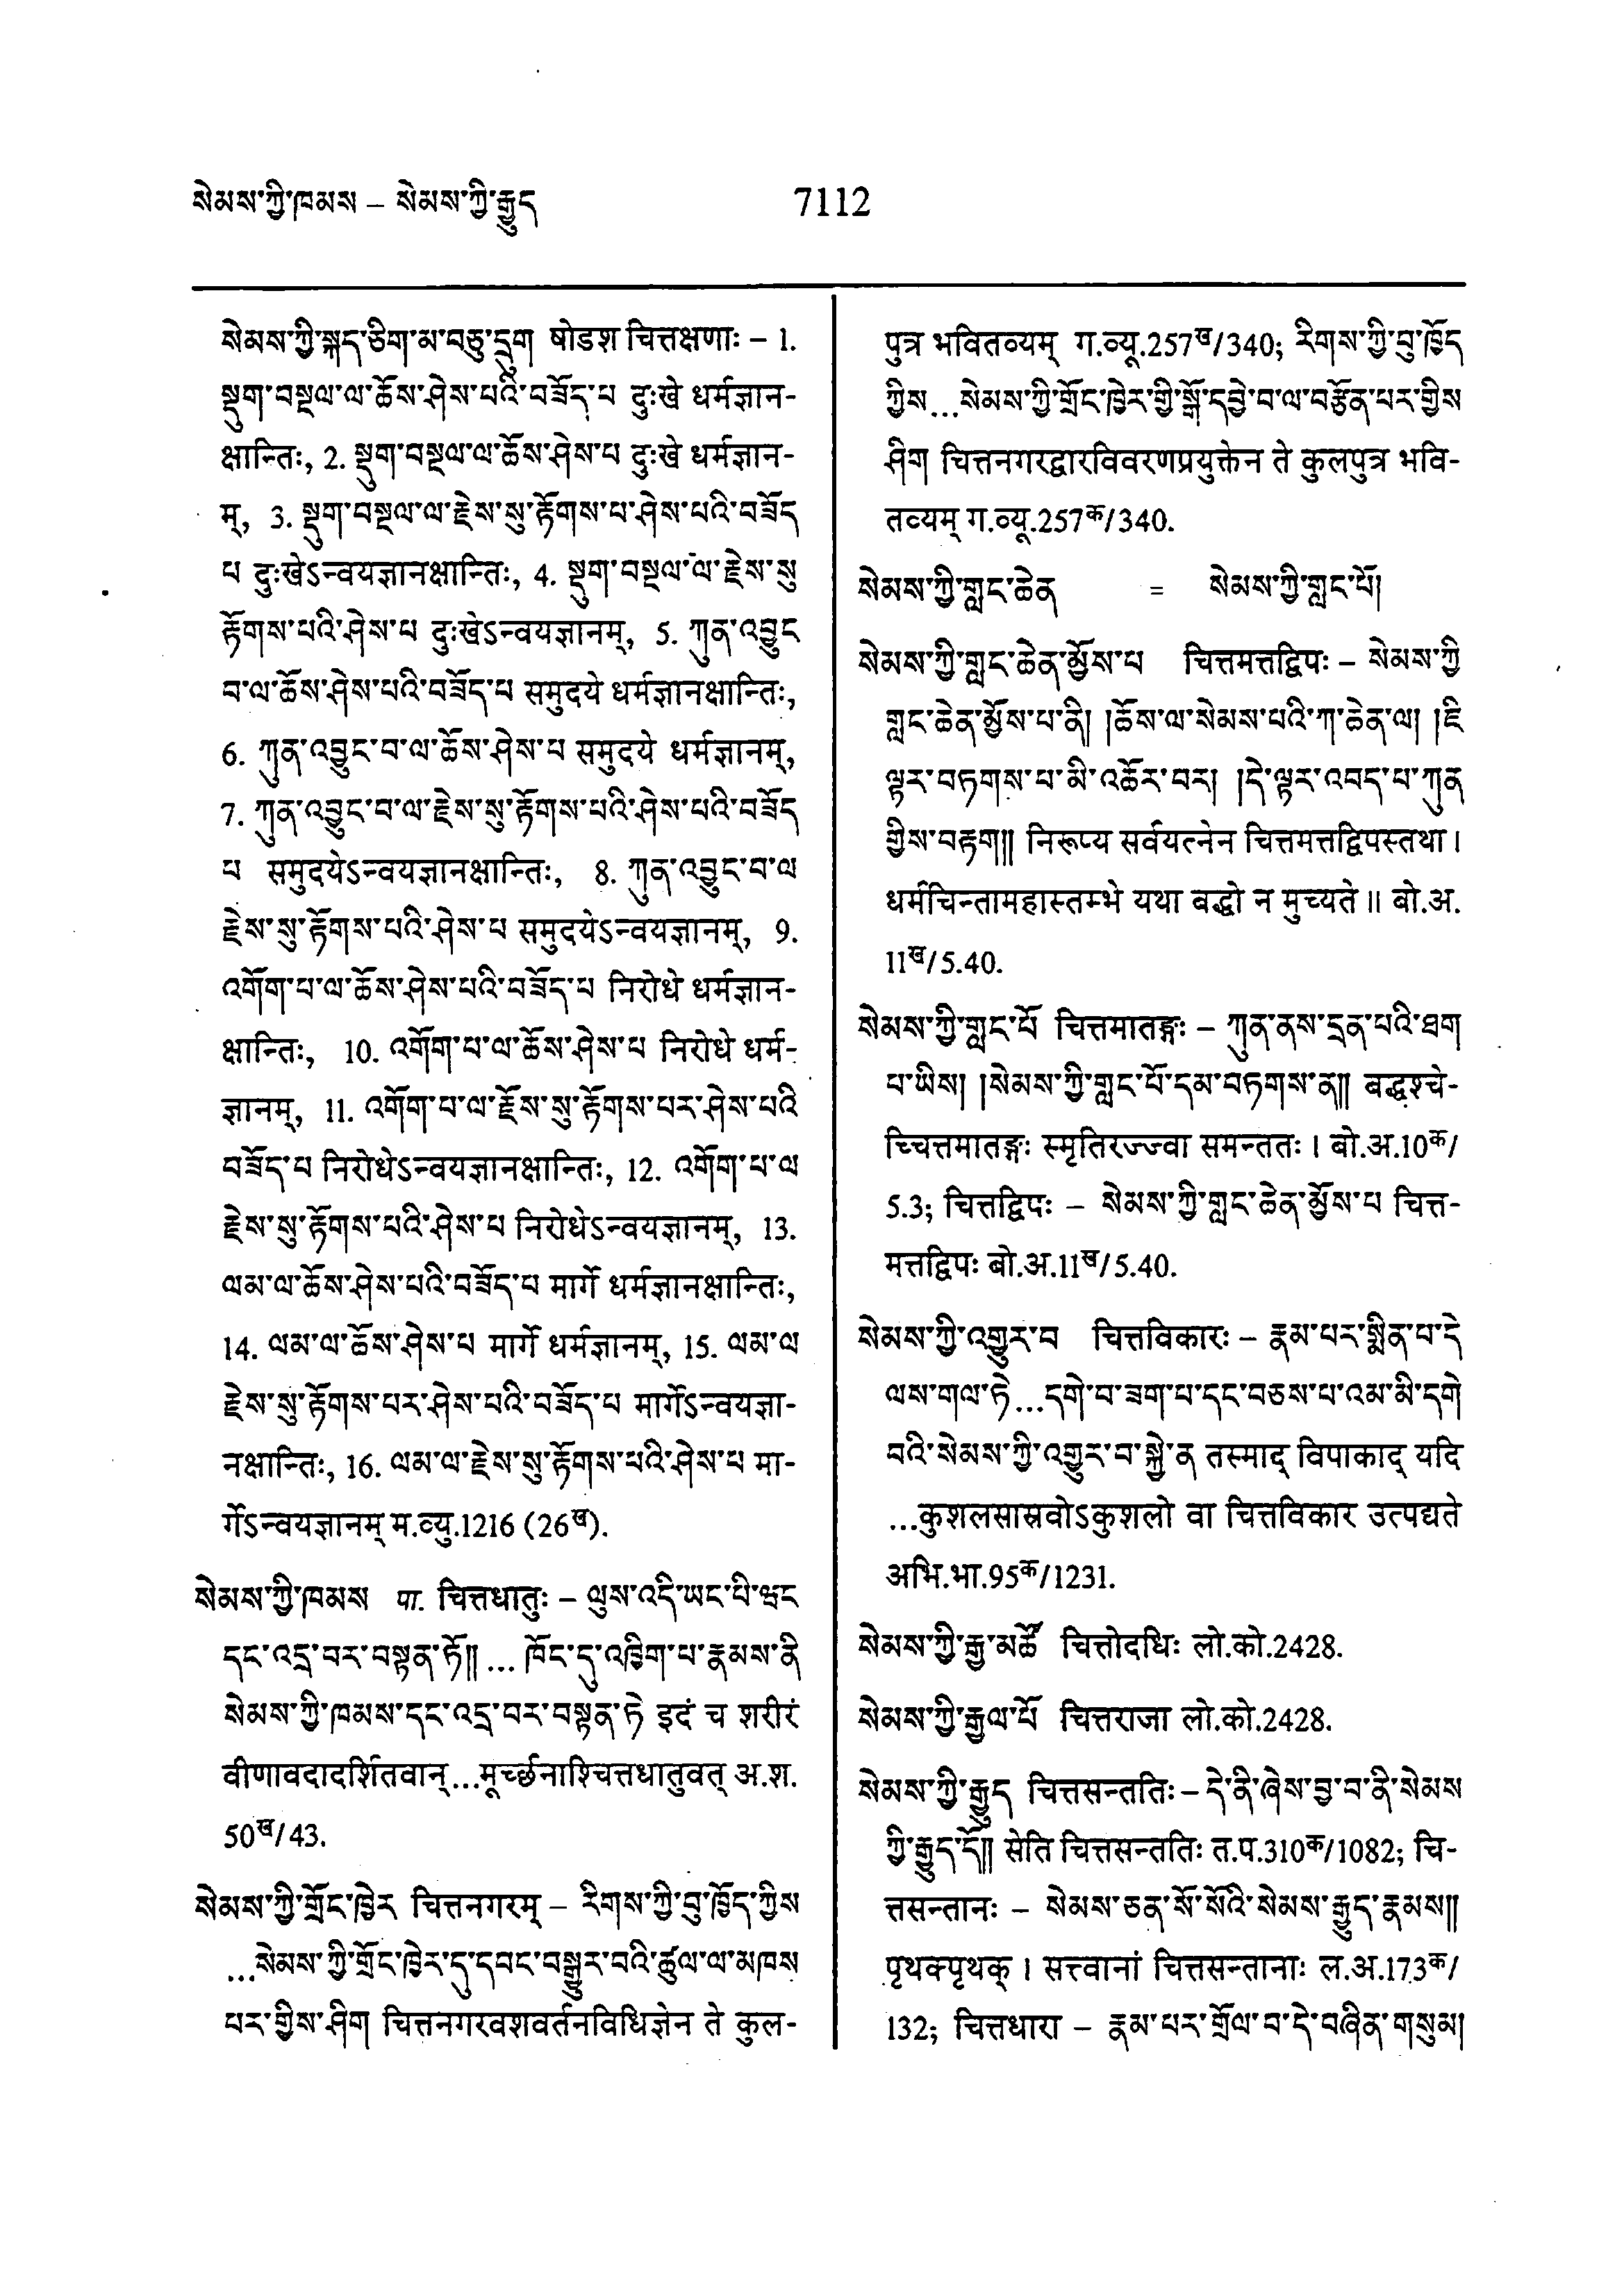 སེམས་ཀྱི་ཁམས – སེམས་ཀྱི་རྒྱུད
7112
སེམས་ཀྱི་སྐད་ཅིག་མ་བཅུ་དྲུག षोडश चित्तक्षणाः – 1.
སྡུག་བསྔལ་ལ་ཆོས་ཤེས་པའི་བཟོད་པ दुःखे धर्मज्ञान-
क्षान्तिः, 2. སྡུག་བསྔལ་ལ་ཆོས་ཤེས་པ दुःखे धर्मज्ञान-
म्, 3. སྡུག་བསྔལ་ལ་རྗེས་སུ་རྟོགས་པ་ཤེས་པའི་བཟོད
པ दुःखेऽन्वयज्ञानक्षान्तिः, 4. སྡུག་བསྔལ་ལ་རྗེས་སུ
རྟོགས་པའི་ཤེས་པ दुःखेऽन्वयज्ञानम्, 5. ཀུན་འབྱུང
བ་ལ་ཆོས་ཤེས་པའི་བཟོད་པ समुदये धर्मज्ञानक्षान्तिः,
6. ཀུན་འབྱུང་བ་ལ་ཆོས་ཤེས་པ समुदये धर्मज्ञानम्,
7. ཀུན་འབྱུང་བ་ལ་རྗེས་སུ་རྟོགས་པའི་ཤེས་པའི་བཟོད
པ समुदयेऽन्वयज्ञानक्षान्तिः, 8. ཀུན་འབྱུང་བ་ལ
རྗེས་སུ་རྟོགས་པའི་ཤེས་པ समुदयेऽन्वयज्ञानम्, 9.
འགོག་པ་ལ་ཆོས་ཤེས་པའི་བཟོད་པ निरोधे धर्मज्ञान-
क्षान्तिः, 10. འགོག་པ་ལ་ཆོས་ཤེས་པ निरोधे धर्म-
ज्ञानम्, 11. འགོག་པ་ལ་རྗོས་སུ་རྟོགས་པར་ཤེས་པའི
བཟོད་པ निरोधेऽन्वयज्ञानक्षान्तिः, 12. འགོག་པ་ལ
རྗེས་སུ་རྟོགས་པའི་ཤེས་པ निरोधेऽन्वयज्ञानम्, 13.
ལམ་ལ་ཆོས་ཤེས་པའི་བཟོད་པ मार्गे धर्मज्ञानक्षान्तिः,
14. ལམ་ལ་ཆོས་ཤེས་པ मार्गे धर्मज्ञानम्, 15. ལམ་ལ
རྗེས་སུ་རྟོགས་པར་ཤེས་པའི་བཟོད་པ मार्गेऽन्वयज्ञा-
नक्षान्तिः, 16. ལམ་ལ་རྗེས་སུ་རྟོགས་པའི་ཤེས་པ मा-
र्गेऽन्वयज्ञानम् म.व्यु.1216 (26ख).
སེམས་ཀྱི་ཁམས पा. चित्तधातुः – ལུས་འདི་ཡང་པི་ཝང
དང་འདྲ་བར་བསྟན་ཏོ།། ... ཁོང་དུ་འཁྲིག་པ་རྣམས་ནི
སེམས་ཀྱི་ཁམས་དང་འདྲ་བར་བསྟན་ཏེ इदं च शरीरं
वीणावदादर्शितवान्...मूर्च्छनाश्चित्तधातुवत् अ.श.
50ख/43.
སེམས་ཀྱི་གྲོང་ཁྱེར चित्तनगरम् – རིགས་ཀྱི་བུ་ཁྱོད་ཀྱིས
...སེམས་ཀྱི་གྲོང་ཁྱེར་དུ་དབང་བསྒྱུར་བའི་ཚུལ་ལ་མཁས
པར་གྱིས་ཤིག चित्तनगरवशवर्तनविधिज्ञेन ते कुल-
पुत्र भवितव्यम् ग.व्यू.257ख/340; རིགས་ཀྱི་བུ་ཁྱོད
ཀྱིས...སེམས་ཀྱི་གྲོང་ཁྱེར་གྱི་སྒོ་དབྱེ་བ་ལ་བརྩོན་པར་གྱིས
ཤིག चित्तनगरद्वारविवरणप्रयुक्तेन ते कुलपुत्र भवि-
तव्यम् ग.व्यू.257क/340.
སེམས་ཀྱི་གླང་ཆེན = སེམས་ཀྱི་གླང་པོ།
སེམས་ཀྱི་གླང་ཆེན་མྱོས་པ चित्तमत्तद्विपः – སེམས་ཀྱི
གླང་ཆེན་མྱོས་པ་ནི། །ཆོས་ལ་སེམས་པའི་ཀ་ཆེན་ལ། །ཇི
ལྟར་བཏགས་པ་མི་འཆོར་བར། །དེ་ལྟར་འབད་པ་ཀུན
གྱིས་བརྟག།། निरूप्य सर्वयत्नेन चित्तमत्तद्विपस्तथा ।
धर्मचिन्तामहास्तम्भे यथा बद्धो न मुच्यते ॥ बो.अ.
11ख/5.40.
སེམས་ཀྱི་གླང་པོ चित्तमातङ्गः – ཀུན་ནས་དྲན་པའི་ཐག
པ་ཡིས། །སེམས་ཀྱི་གླང་པོ་དམ་བཏགས་ན།། बद्धश्चे-
च्चित्तमातङ्गः स्मृतिरज्ज्वा समन्ततः । बो.अ.10क/
5.3; चित्तद्विपः – སེམས་ཀྱི་གླང་ཆེན་མྱོས་པ चित्त-
मत्तद्विपः बो.अ.11ख/5.40.
སེམས་ཀྱི་འགྱུར་བ चित्तविकारः – རྣམ་པར་སྨིན་པ་དེ
ལས་གལ་ཏེ...དགེ་བ་ཟག་པ་དང་བཅས་པ་འམ་མི་དགེ
བའི་སེམས་ཀྱི་འགྱུར་བ་སྐྱེ་ན तस्माद् विपाकाद् यदि
...कुशलसास्रवोऽकुशलो वा चित्तविकार उत्पद्यते
अभि.भा.95क/1231.
སེམས་ཀྱི་རྒྱ་མཚོ चित्तोदधिः लो.को.2428.
སེམས་ཀྱི་རྒྱལ་པོ चित्तराजा लो.को.2428.
སེམས་ཀྱི་རྒྱུད चित्तसन्ततिः – དེ་ནི་ཞེས་བྱ་བ་ནི་སེམས
ཀྱི་རྒྱུད་དོ།། सेति चित्तसन्ततिः त.प.310क/1082; चि-
त्तसन्तानः – སེམས་ཅན་སོ་སོའི་སེམས་རྒྱུད་རྣམས།།
पृथक्पृथक् । सत्त्वानां चित्तसन्तानाः ल.अ.173क/
132; चित्तधारा – རྣམ་པར་གྲོལ་བ་དེ་བཞིན་གསུམ།